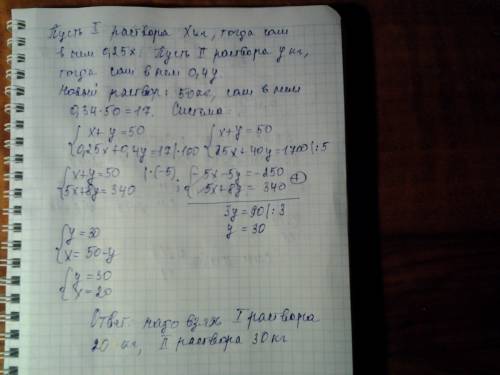 Пусть I раствора x кг, тогда сам
в нем 0,25x. Пусть II раствора y кг,
тогда сам в нем 0,4y.
Новый раствор: 50 кг, сам в нем
0,34·50=17. Система:
{x+y=50 {x+y=50
0,25x+0,4y=17 |·100 25x+40y=1700 |:5
{x+y=50 |·(-5) {-5x-5y=-250
5x+8y=340 ; 5x+8y=340 (+)
3y=90 |:3
{y=30 y=30
x=50-y
{y=30
x=20
Ответ: надо взять I раствора
20 кг, II раствора 30 кг